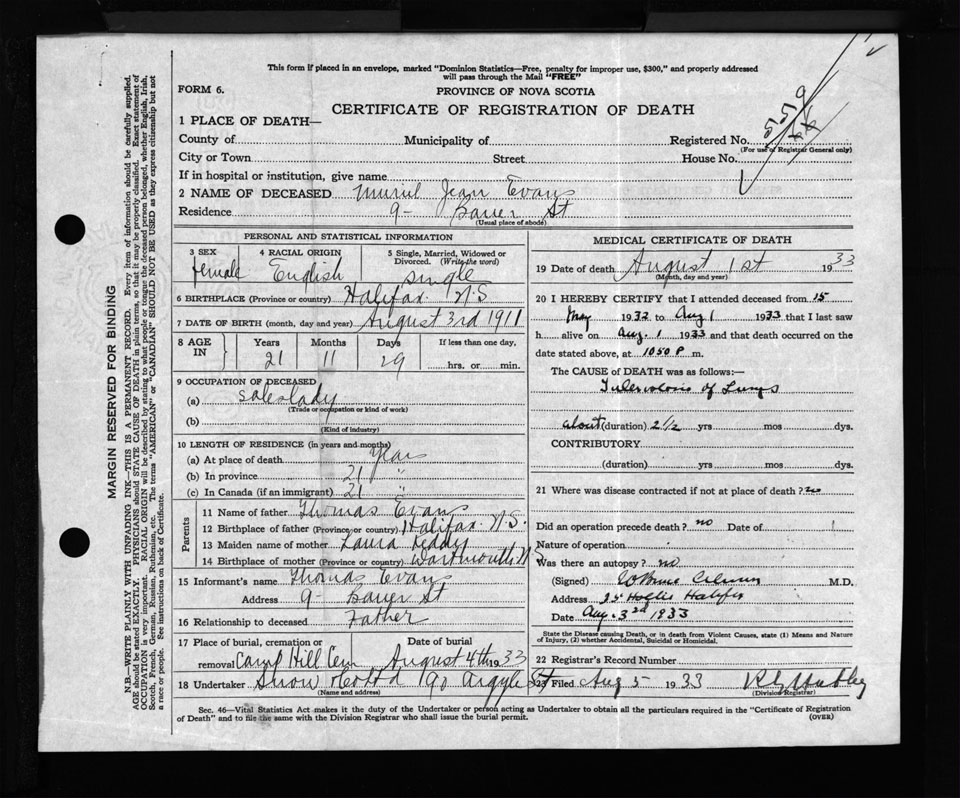 This form if placed in an envelope, marked "Dominion Statistics—Free, penalty for improper use, $300," and properly addressed
will pass through the Mail "FREE"
FORM 6.
PROVINCE OF NOVA SCOTIA
CERTIFICATE OF REGISTRATION OF DEATH
559
1 PLACE OF DEATH—
County of Municipality of Registered No.
(For use of Registrar General only)
City or Town Street House No.
If in hospital or institution, give name
2 NAME OF DECEASED Muriel Jean Evans
Residence 9- Bauer St
(Usual place of abode)
PERSONAL AND STATISTICAL INFORMATION
3 SEX 4 RACIAL ORIGIN 5 Single, Married, Widowed or Divorced. (Write the word)
female English single
6 BIRTHPLACE (Province or country) Halifax N.S.
7 DATE OF BIRTH (month, day and year) August 3rd 1911
8 AGE IN Years Months Days If less than one day,
21 11 29 hrs. or min.
9 OCCUPATION OF DECEASED
(a) saleslady
(Trade or occupation or kind of work)
(b)
(Kind of industry)
10 LENGTH OF RESIDENCE (in years and months)
(a) At place of death years
(b) In province 21 "
(c) In Canada (if an immigrant) 21 "
Parents
11 Name of father Thomas Evans
12 Birthplace of father (Province or country) Halifax N.S.
13 Maiden name of mother Laura Leddy
14 Birthplace of mother (Province or country) Dartmouth N.S.
15 Informant's name Thomas Evans
Address 9- Bauer St
16 Relationship to deceased Father
17 Place of burial, cremation or removal Camp Hill Cem Date of burial August 4th 1933
18 Undertaker Snow & Co Ltd 90 Argyle St
(Name and address)
MEDICAL CERTIFICATE OF DEATH
19 Date of death August 1st 1933
(Month, day and year)
20 I HEREBY CERTIFY that I attended deceased from 15
May 1932 to Aug 1 1933 that I last saw
h alive on Aug. 1 1933 and that death occurred on the
date stated above, at 1050 P m.
The CAUSE of DEATH was as follows:—
Tuberculosis of Lungs
about (duration) 2 1/2 yrs mos dys.
CONTRIBUTORY.
(duration) yrs mos dys.
21 Where was disease contracted if not at place of death? no
Did an operation precede death? no Date of
Nature of operation
Was there an autopsy? no
(Signed) M.D.
Address Hollis Halifax
Date Aug. 3rd 1933
State the Disease causing Death, or in death from Violent Causes, state (1) Means and Nature
of Injury, (2) whether Accidental, Suicidal or Homicidal.
22 Registrar's Record Number
23 Filed Aug 5 1933
(Division Registrar)
Sec. 46—Vital Statistics Act makes it the duty of the Undertaker or person acting as Undertaker to obtain all the particulars required in the "Certificate of Registration
of Death" and to file the same with the Division Registrar who shall issue the burial permit.
(OVER)
MARGIN RESERVED FOR BINDING
N.B.—WRITE PLAINLY WITH UNFADING INK—THIS IS A PERMANENT RECORD. Every item of information should be carefully supplied.
AGE should be stated EXACTLY. PHYSICIANS should STATE CAUSE OF DEATH in plain terms, so that it may be properly classified. Exact statement of
OCCUPATION is very important. RACIAL ORIGIN will be described by stating to what people or tongue the deceased person belonged, whether English, Irish,
Scotch, French, German, Russian, Ruthenian, etc. The terms "AMERICAN" or "CANADIAN" SHOULD NOT BE USED as they express citizenship but not
a race or people. See instructions on back of Certificate.